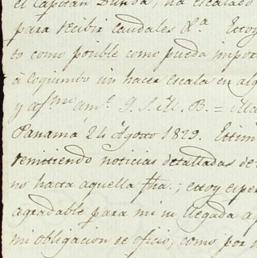 el Capitan Dunda, ha escalado
para recibir caudales &.a Estoy
to como posible como pueda impor
á Coquimbo sin hacer escala en alg
y af.mo am.o Q. S. M. B. =
Panamá 24 Agosto 1829. Estim
remitiendo noticias detalladas de
no hasta aquella fha.; estoy espe
agradable para mi su llegada a
mi obligacion de oficio; como por